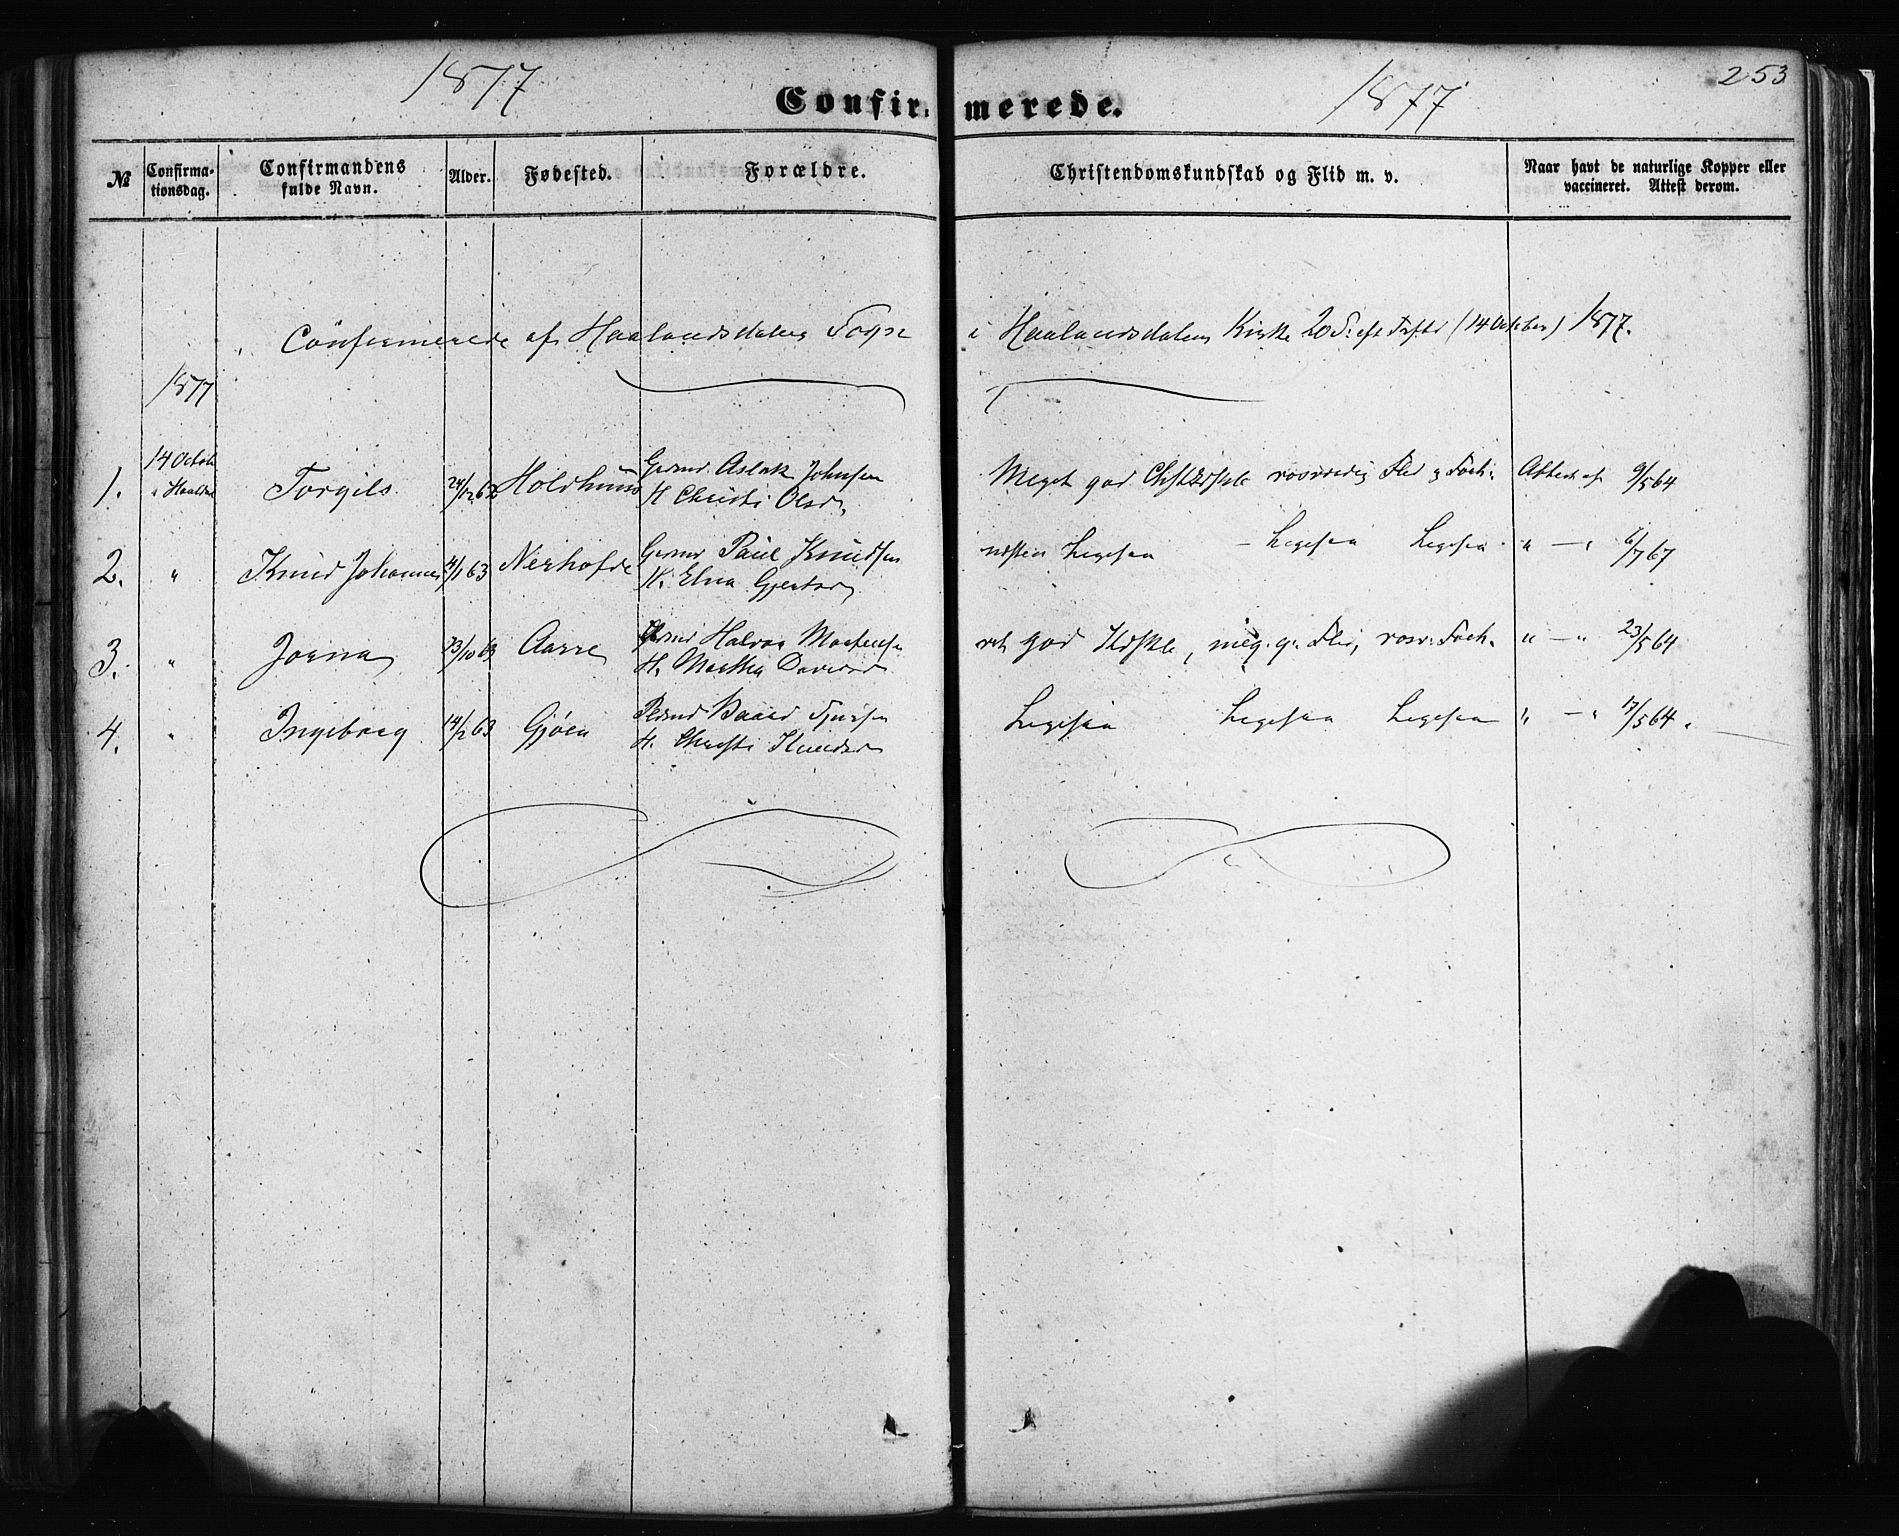 1877
1877
253
Confir-
merede.
№
Confirma-
tionsdag.
Confirmandens
fulde Navn.
Alder.
Fødested.
Forældre.
Christendomskundskab og Flid m. v.
Naar havt de naturlige Kopper eller
vaccineret. Attest derom.
Confirmerede af Haalandsdalens Sogn
i Haalandsdalens Kirke 20 S. eft Trft (14 October) 1877.
1877
1. 14 Octob Torgils 24/12 62 Holdhuus Grmd. Aslak Johnsen Meget god rosværdig Flid og Forh. Attest af 9/5 64
i Haalsd H. Christi Olsd.
2. " Knud Johannes 4/1 63 Nerhofde Grmd Paul Knudsen næsten Ligesaa - Ligesaa Ligesaa. " — " 6/7 67
H. Elna Gjertsd
3. " Josina 13/10 63 Aarre Halvor Mortensen ret god Kdskb, meg. g. Flid, rosv. Forh. " — " 23/5 64
H. Martha Davidsd
4. " Ingeborg 14/2 63 Gjøen Baard Sjursen Ligesaa Ligesaa Ligesaa " — " 17/5 64.
H. Christi Knudsd